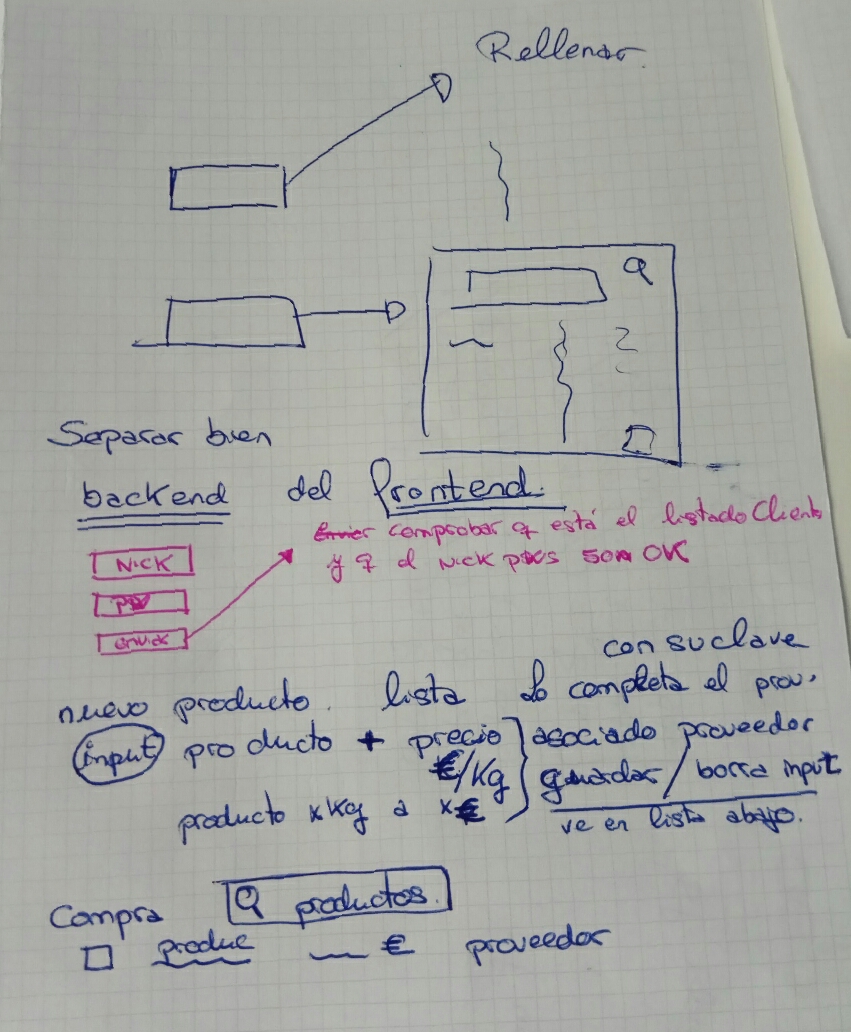 Rellenar.
Separar bien
backend del frontend.
Enviar comprobar q está el listado Cliente
y q el NICK pws son OK
NICK
PW
enviar
con su clave
nuevo producto. lista lo completa el prov.
input producto + precio asociado proveedor
€/Kg guardar / borra input
producto x Kg a x € ve en lista abajo.
Compra productos.
produc € proveedor